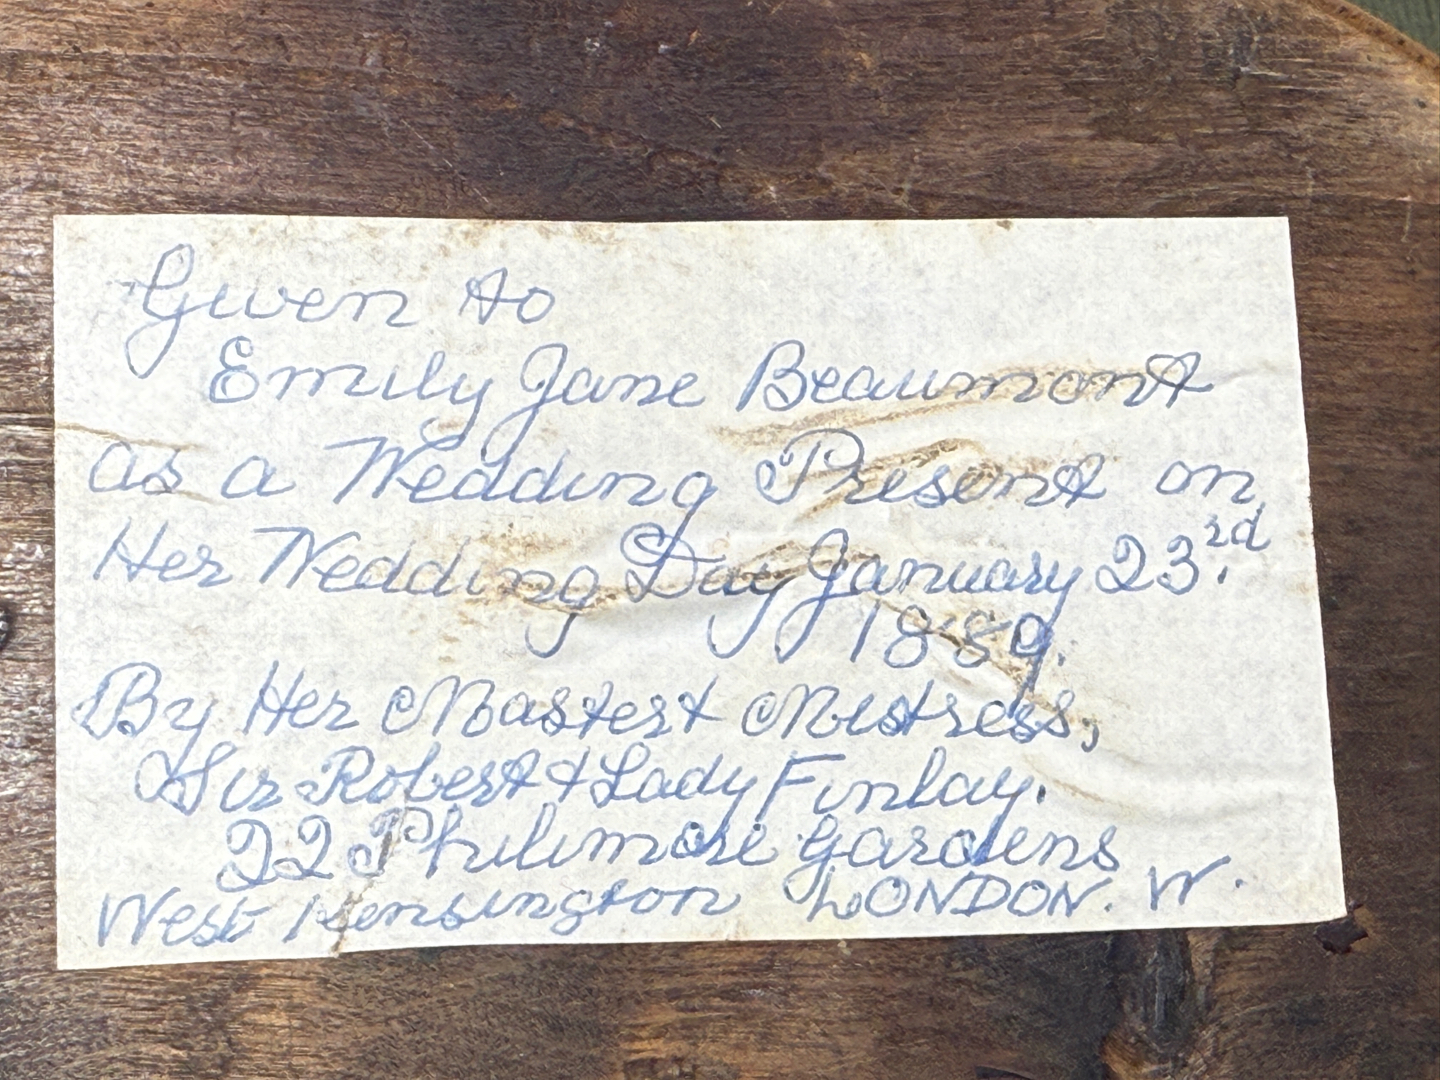 Given to
Emily Jane Beaumont
as a Wedding Present on
Her Wedding Day January 23.rd
1889.
By Her Master & Mistress,
Sir Robert & Lady Finlay.
22 Philimore Gardens
West Kensington LONDON. W.